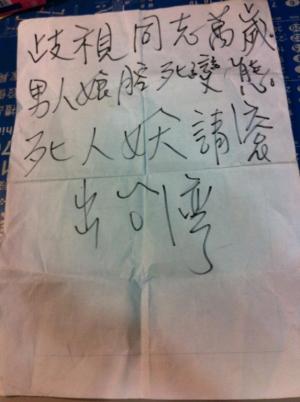 歧視同志萬歲
男人娘腔死變態。
死人妖請滾
出台灣